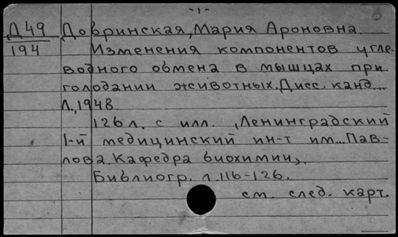 -1-
Д49 Добринская, Мария Ароновна.
194 Изменения компонентов угле-
водного обмена в мышцах при
голодании животных. Дисс. канд...
Л., 1948.
126 л. с илл. (Ленинградский
1-й медицинский ин-т им... Пав-
лова. Кафедра биохимии).
Библиогр. л. 116-126.
см. след. карт.